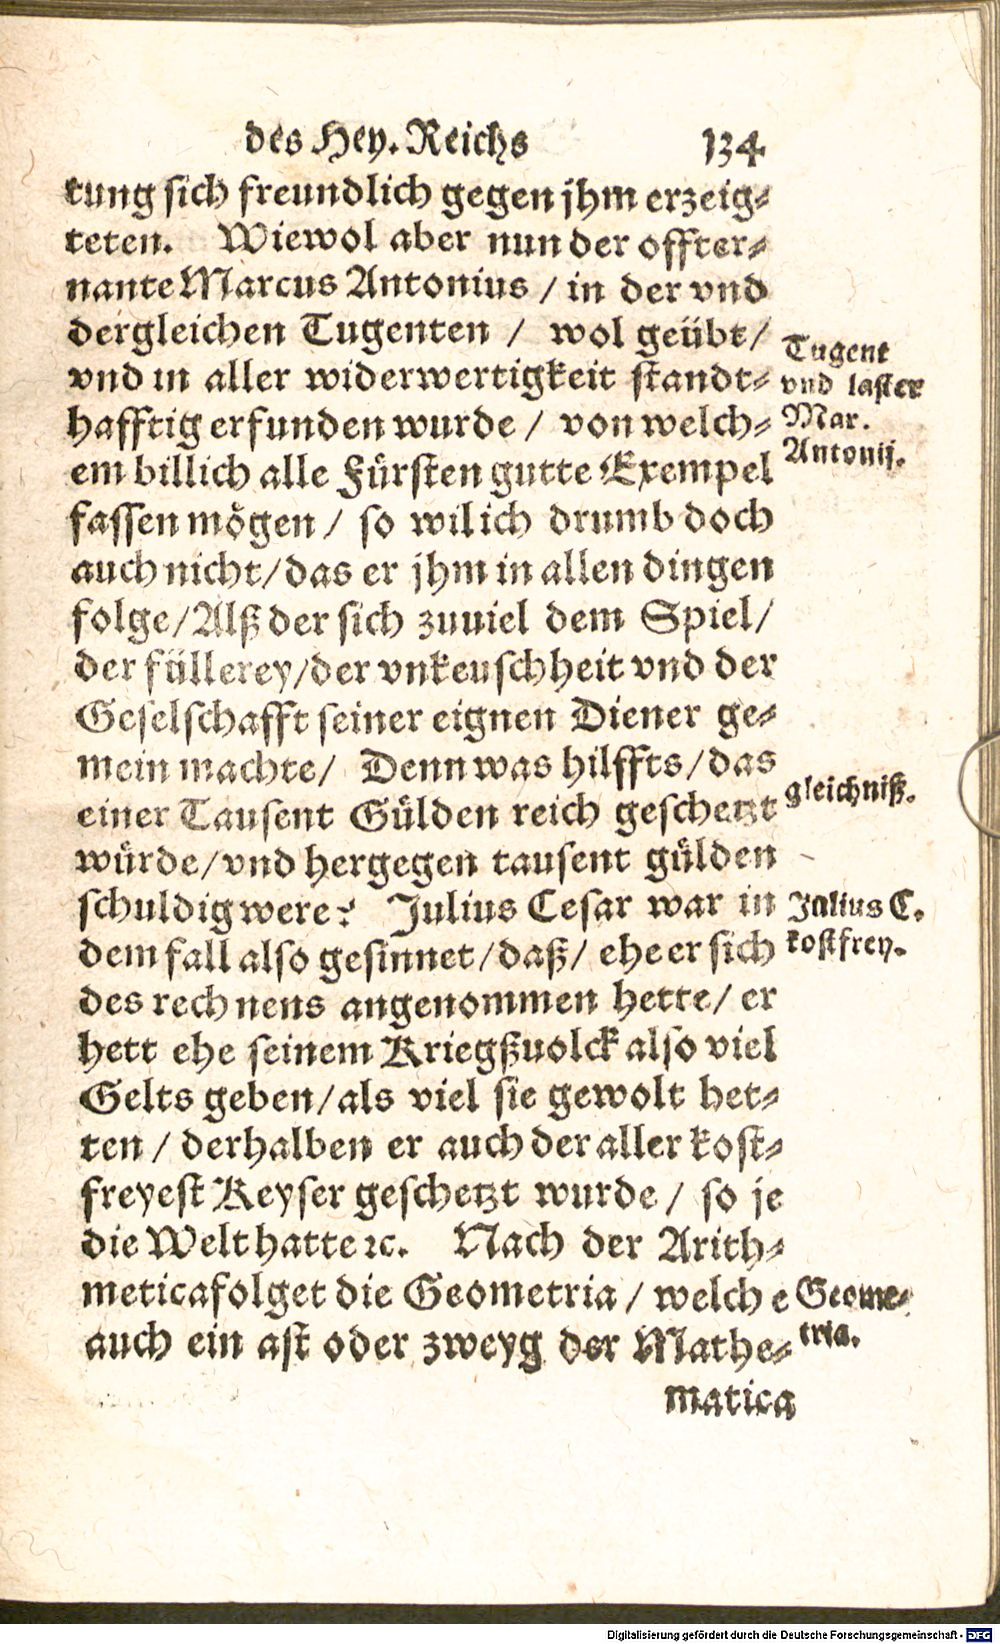 des Hey. Reichs 134
tung sich freundlich gegen jhm erzeig-
teten. Wiewol aber nun der offter-
nante Marcus Antonius / in der vnd
dergleichen Tugenten / wol geübt /
vnd in aller widerwertigkeit standt-
hafftig erfunden wurde / von welch-
em billich alle Fürsten gutte Exempel
fassen mögen / so wil ich drumb doch
auch nicht / das er jhm in allen dingen
folge / Alß der sich zuuiel dem Spiel /
der füllerey / der vnkeuschheit vnd der
Geselschafft seiner eignen Diener ge-
mein machte / Denn was hilffts / das
einer Tausent Gülden reich geschetzt
würde / vnd hergegen tausent gülden
schuldig were? Julius Cesar war in
dem fall also gesinnet / daß / ehe er sich
des rechnens angenommen hette / er
hett ehe seinem Kriegßuolck also viel
Gelts geben / als viel sie gewolt het-
ten / derhalben er auch der aller kost-
freyest Keyser geschetzt wurde / so je
die Welt hatte ꝛc. Nach der Arith-
metica folget die Geometria / welche
auch ein ast oder zweyg der Mathe-
matica
Tugent
vnd laster
Mar.
Antonij.
gleichniß.
Julius C.
kostfrey.
Geome-
tria.
Digitalisierung gefördert durch die Deutsche Forschungsgemeinschaft - DFG